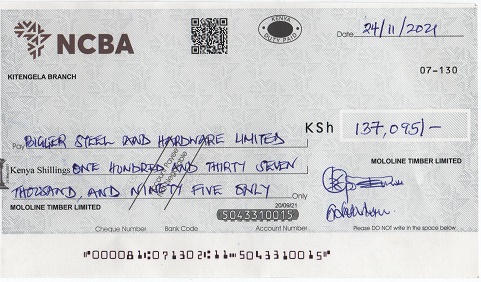 NCBA
KENYA
DUTY PAID
Date 24/11/2021
KITENGELA BRANCH
07-130
Pay BIGGER STEEL AND HARDWARE LIMITED
KSh 137,095/-
Kenya Shillings ONE HUNDRED AND THIRTY SEVEN
THOUSAND, AND NINETY FIVE ONLY Only
MOLOLINE TIMBER LIMITED
MOLOLINE TIMBER LIMITED
20/09/21
5043310015
Cheque Number Bank Code Account Number
Please DO NOT write in the space below
"000081:07130211: 5043310015"